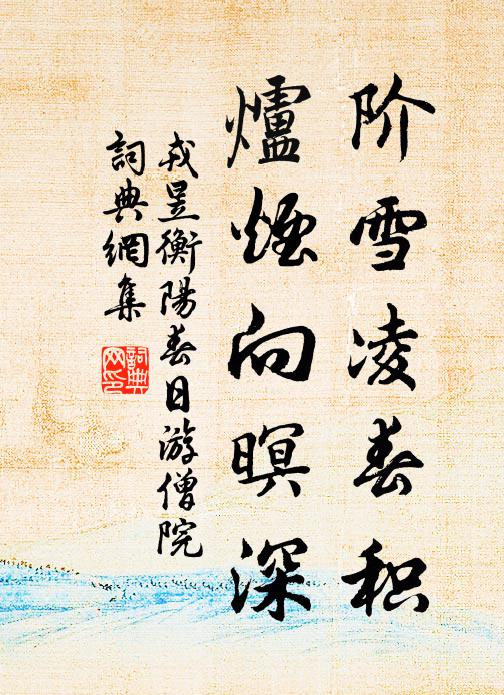 阶雪凌春积
爐煙向暝深
戎昱衡陽春日游僧院
詞典網集
詞典
网印